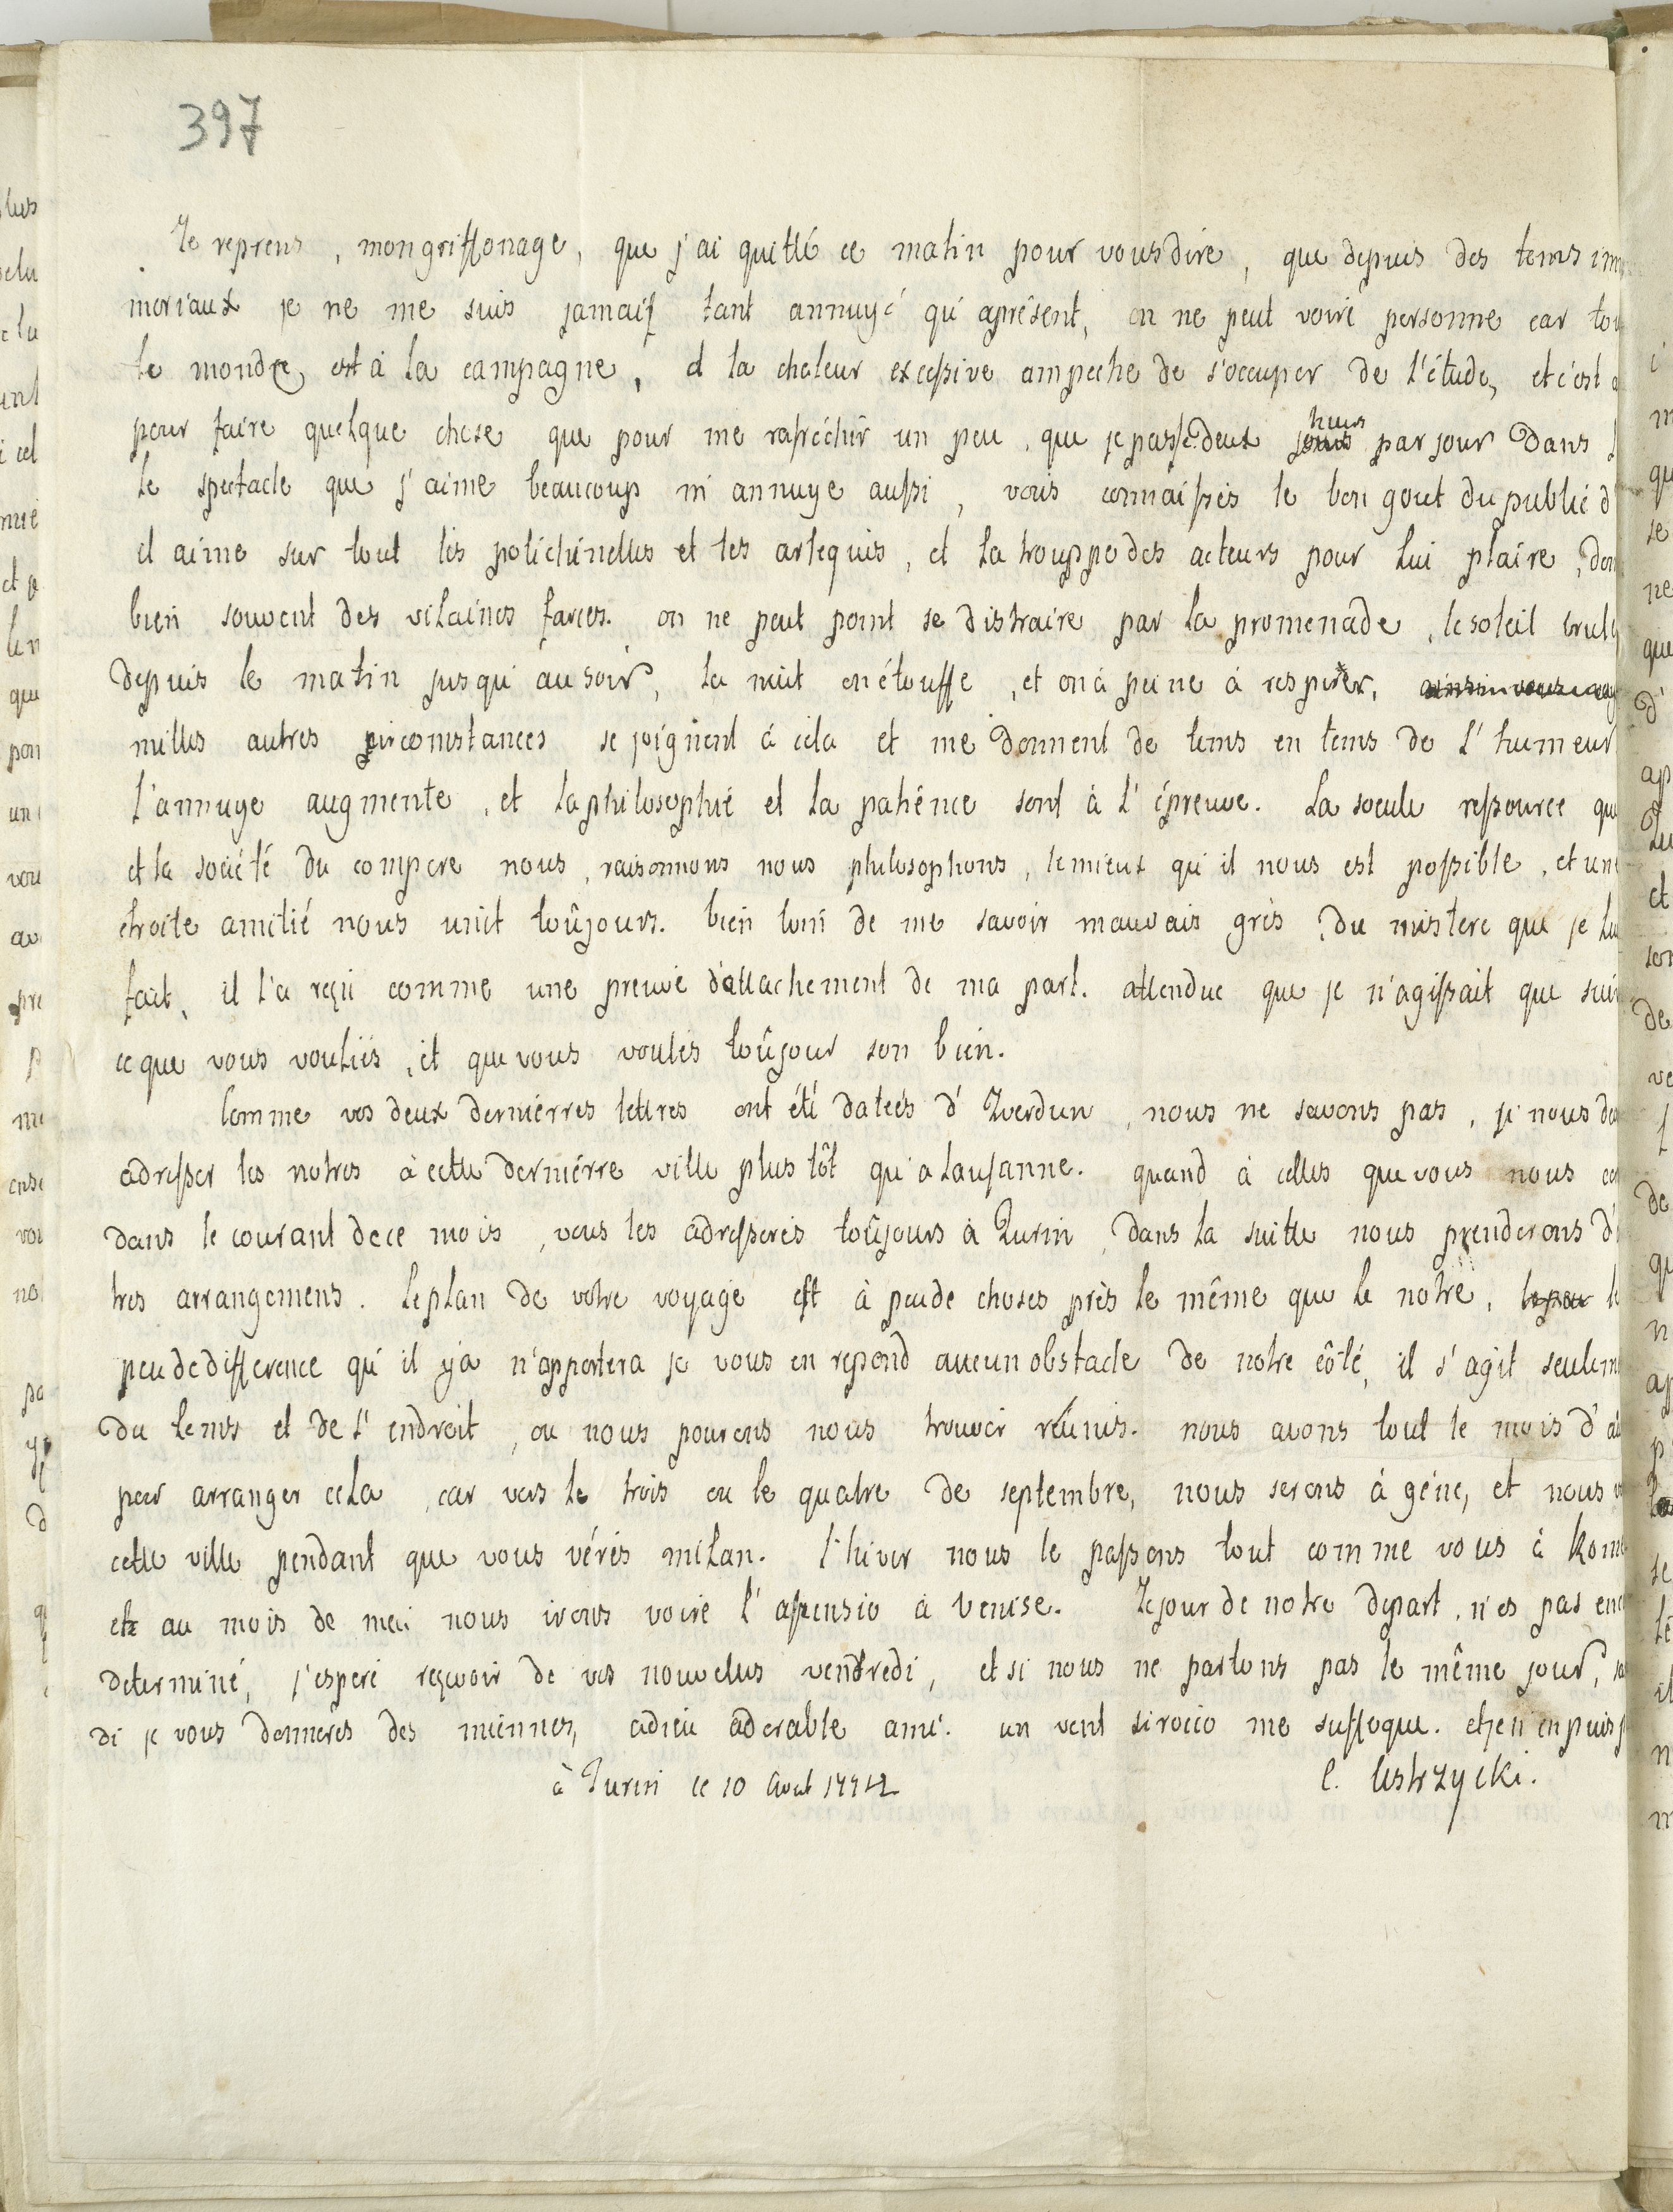 397
Je reprens, mon griffonage, que j'ai quitté ce matin pour vous dire, que depuis des tems im
moriaux je ne me suis jamais tant annuyé qu'aprêsent, on ne peut voire personne car tou
le mondre est à la campagne, et la chaleur excessive ampeche de s'occuper de l'étude, et c'est
pour faire quelque chose que pour me rafréchir un peu, que je passe deux heurs par jour dans
le spectacle que j'aime beaucoup m'annuye aussi, vous connaissés le bon gout du public d
il aime sur tout les polichinelles et les arlequis, et la trouppe des acteurs pour lui plaire, don
bien souvent des vilaines farces. on ne peut point se distraire par la promenade, le soleil brule
depuis le matin jusqu'au soir, la nuit on étouffe, et on à peine à respirer,
milles autres circonstances se joignent à cela et me donnent de tems en tems de l'humeur
l'annuye augmente, et la philosophie et la patience sont à l'épreuve. La soeule ressource que
et la société du compere nous, raisonnons nous philosophons, le mieux qu'il nous est possible, et une
etroite amitié nous unit toûjours. bien loin de me savoir mauvais grés, du mistere que je lui
fait, il l'a reçu comme une preuve d'attachement de ma part. attendue que je n'agissait que suiv
ce que vous vouliés, et que vous voulés toûjour son bien.
Comme vos deux derniérres lettres ont été dateés d'Yverdun, nous ne savons pas, si nous de
adresser les notres à cette derniérre ville plus tôt qu'a Lausanne. quand à celles que vous nous
dans le courant de ce mois, vous les adresserés toûjours à Turin, dans la suitte nous prenderons d'
tres arrangemens. Le plan de votre voyage est à peu de choses près le même que le notre, le
peu de difference qu'il y'a n'apportera je vous en repond aucun obstacle de notre côté, il s'agit seulem
du tems et de l'endroit, ou nous pourons nous trouver réunis. nous avons tout le mois d'
pour arranger cela, car vers le trois ou le quatre de septembre, nous serons à géne, et nous
cette ville pendant que vous vérés milan. l'hiver nous le passons tout comme vous à Rome
et au mois de mai nous irons voire l'assensio à Venise. Le jour de notre depart, n'es pas enc
determiné, j'espere reçevoir de vos nouvelles vendredi, et si nous ne partons pas le même jour, sa
di je vous donnerés des miennes, adieu adorable ami. un vent sirocco me suffoque. et je n'en puis p
à Turin ce 10 Aout
C. Ustrzycki.